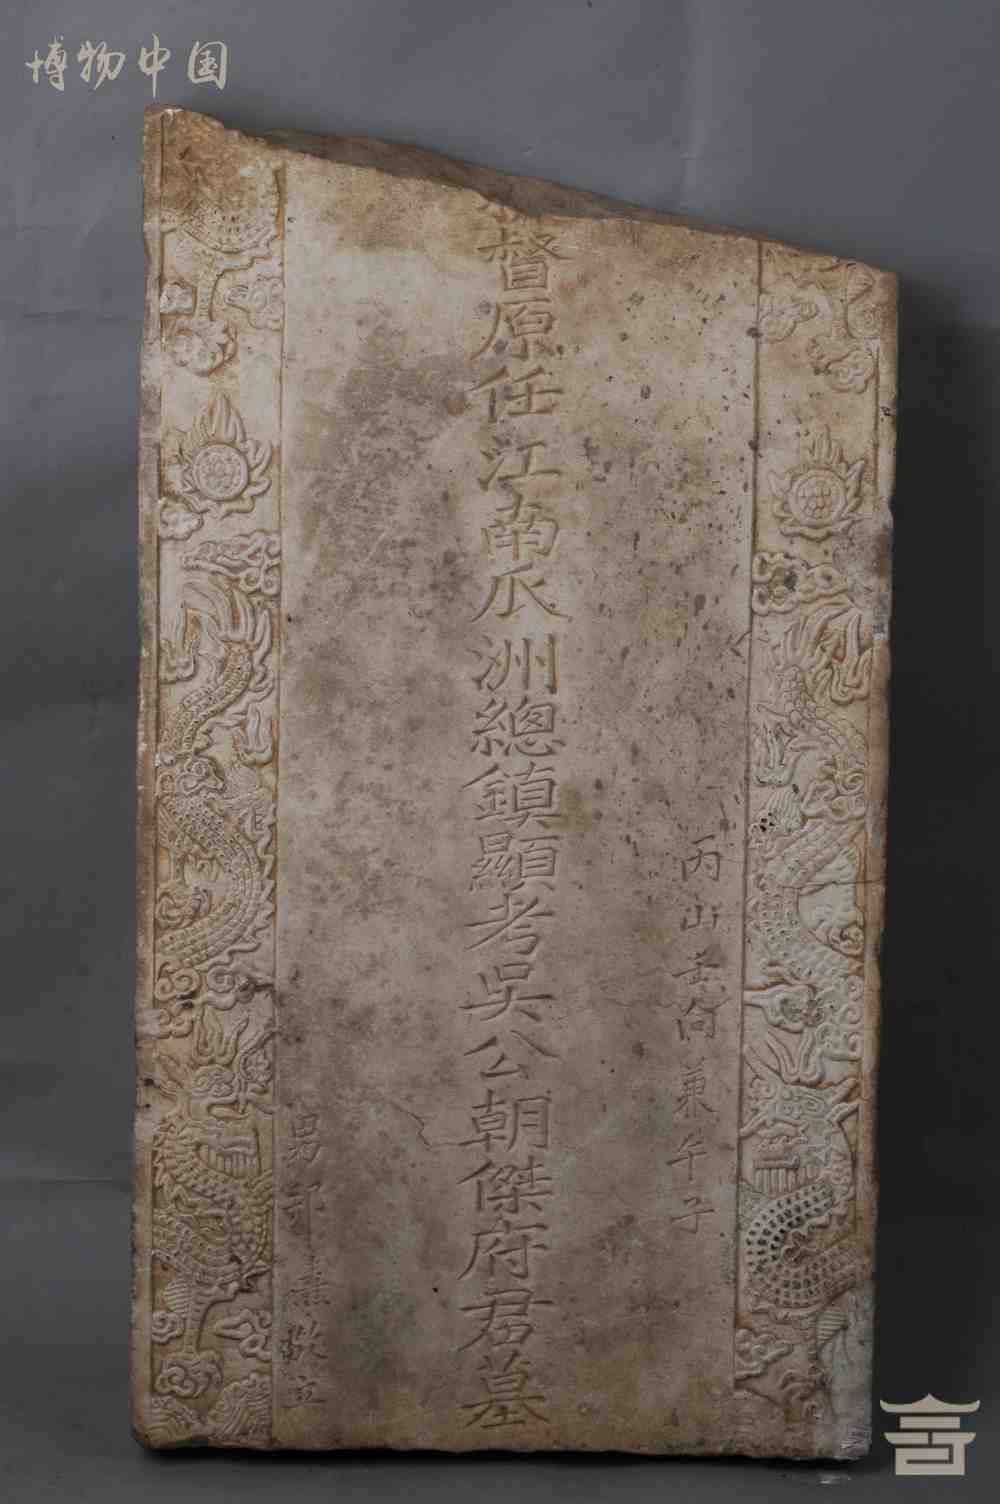 博物中国
丙山壬向兼午子
督原任江南辰洲總鎮顯考吳公朝傑府君墓
男 敬立